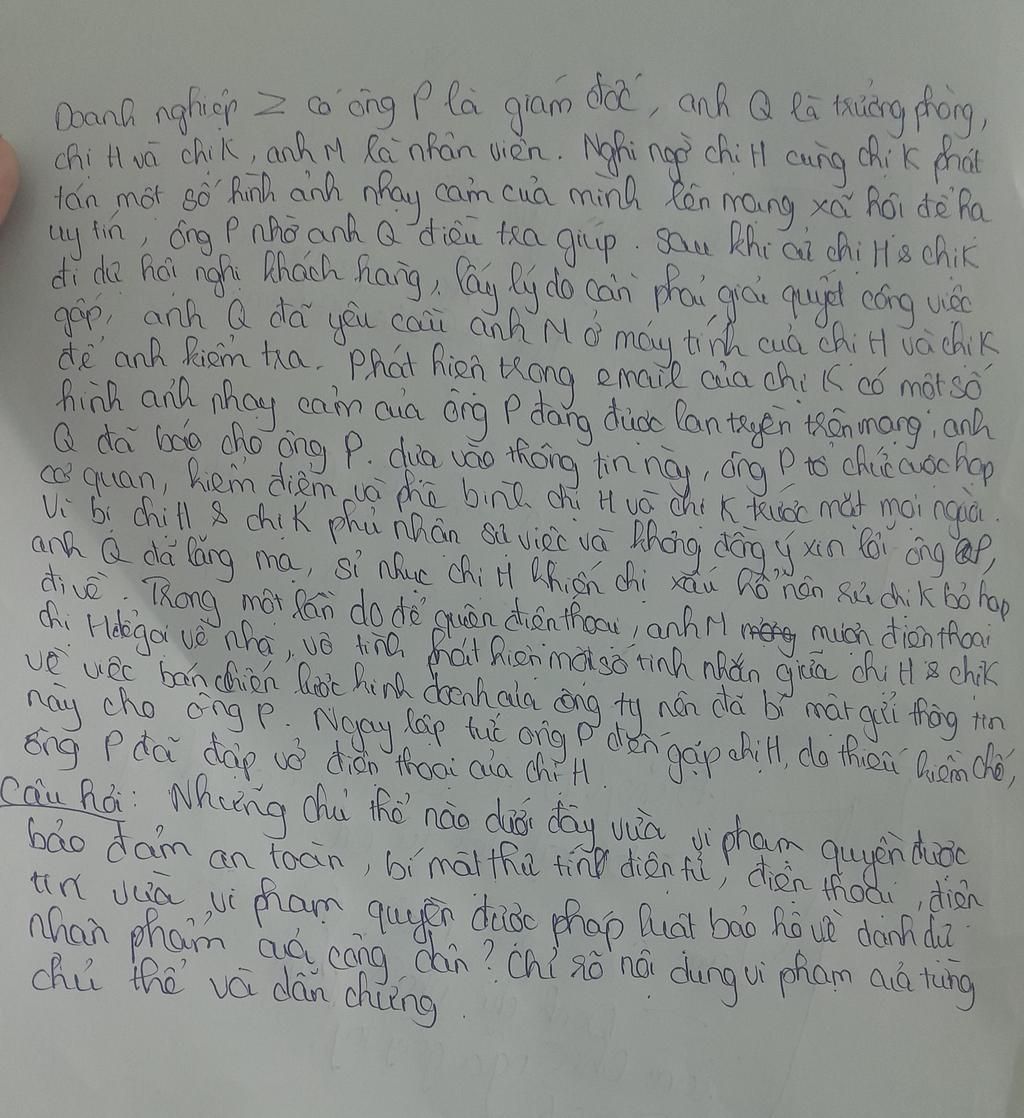 Doanh nghiệp Z có ông P là giám đốc, anh Q là trưởng phòng,
chị H và chị K, anh M là nhân viên. Nghi ngờ chị H cùng chị K phát
tán một số hình ảnh nhạy cảm của mình lên mạng xã hội để hạ
uy tín, ông P nhờ anh Q điều tra giúp. Sau khi cử chị H & chị K
đi dự hội nghị khách hàng, lấy lý do cần phải giải quyết công việc
gấp, anh Q đã yêu cầu anh M ở máy tính của chị H và chị K
để anh kiểm tra. Phát hiện trong email của chị K có một số
hình ảnh nhạy cảm của ông P đang được lan truyền trên mạng, anh
Q đã báo cho ông P. dựa vào thông tin này, ông P tổ chức cuộc họp
cơ quan, kiểm điểm và phê bình chị H và chị K trước mặt mọi người.
Vì bị chị H & chị K phủ nhận sự việc và không đồng ý xin lỗi ông P,
anh Q đã lăng mạ, sỉ nhục chị H khiến chị xấu hổ nên rủ chị K bỏ họp
đi về. Trong một lần do để quên điện thoại, anh M mượn điện thoại
chị H để gọi về nhà, vô tình phát hiện một số tin nhắn giữa chị H & chị K
về việc bán chiến lược kinh doanh của công ty nên đã bí mật gửi thông tin
này cho ông P. Ngay lập tức ông P đến gặp chị H, do thiếu kiềm chế,
ông P đã đập vỡ điện thoại của chị H.
Câu hỏi: Những chủ thể nào dưới đây vừa vi phạm quyền được
bảo đảm an toàn, bí mật thư tín điện tử, điện thoại, điện
tín vừa vi phạm quyền được pháp luật bảo hộ về danh dự
nhân phẩm của công dân? Chỉ rõ nội dung vi phạm của từng
chủ thể và dẫn chứng.